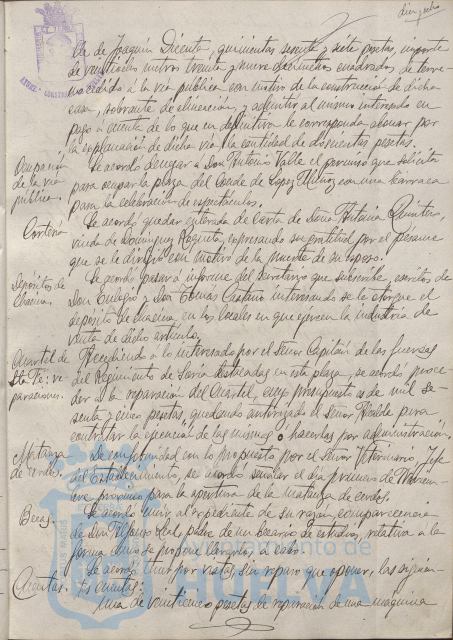 lla de Joaquín Dicenta, quinientas sesenta y siete pesetas, importe
de veintiocho metros treinta y nueve decímetros cuadrados de terre-
no cedido a la vía pública con motivo de la construcción de dicha
casa, sobrante de alineación, y admitir al mismo interesado en
pago a cuenta de lo que en definitiva le corresponda abonar por
la explanación de dicha vía la cantidad de doscientas pesetas.
Ocupación de la vía pública.
Se acordó denegar a Don Antonio Valle el permiso que solicita
para ocupar la plaza del Conde de López Muñoz con una barraca
para la celebración de espectáculos.
Cortesía
Se acordó quedar enterada de Carta de Doña Antonia Quintero,
viuda de Domínguez Roqueta, expresando su gratitud por el pésame
que se le dirigió con motivo de la muerte de su esposo.
Depósitos de Chacina.
Se acordó pasar a informe del Secretario que subscribe, escritos de
Don Eulogio y Don Tomás Castaño interesando se le otorgue el
depósito de chacina en los locales en que ejercen la industria de
venta de dicho artículo.
Cuartel de Sta Fé: reparaciones.
Accediendo a lo interesado por el Señor Capitán de las fuerzas
del Regimiento de Soria destacadas en esta plaza, se acordó proce-
der a la reparación del Cuartel, cuyo presupuesto es de mil se-
senta y cinco pesetas, quedando autorizado el Señor Alcalde para
contratar la ejecución de las mismas o hacerlas por administración.
Matanza de cerdos.
De conformidad con lo propuesto por el Señor Veterinario Jefe
del Establecimiento, se acordó señalar el día primero de Noviem-
bre próximo para la apertura de la matanza de cerdos.
Becas.
Se acordó unir al expediente de su razón, comparecencia
de Don Alfonso Leal, padre de un becario de estudios, relativa a la
forma que se propone
Cuentas.
Se acordó unir por vistas, sin reparo que oponer, las siguien-
tes cuentas:
Una de veinticinco pesetas de reparación de una máquina
Ayuntamiento de
HUELVA